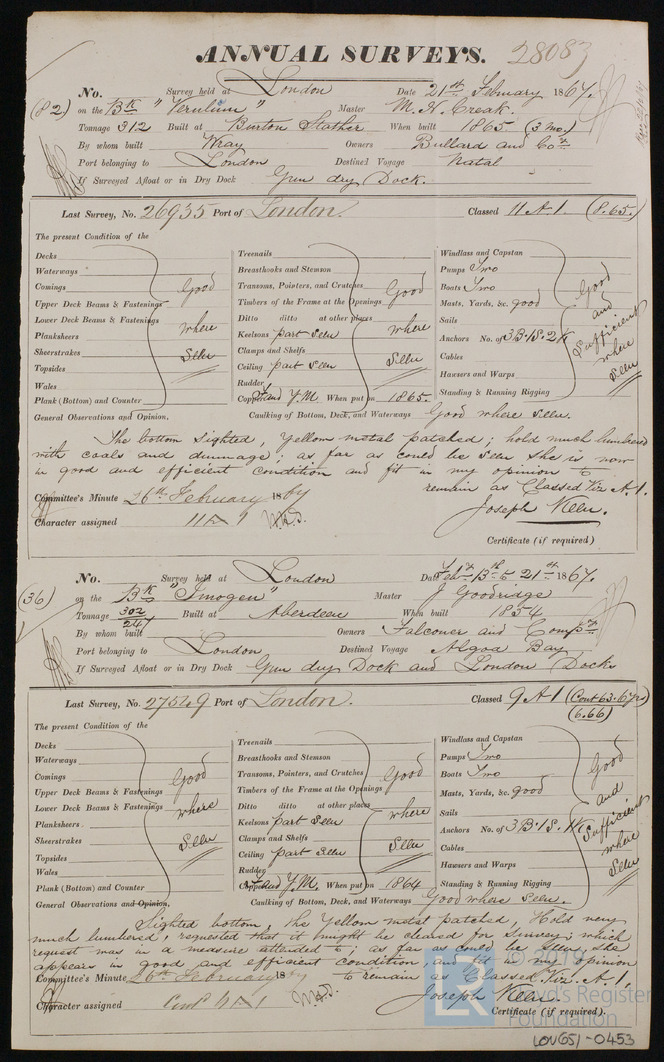 ANNUAL SURVEYS. 28083
No. Survey held at London Date 21st February 1867.
(82) on the Bk "Verulum" Master M. N. Creak.
Tonnage 312 Built at Burton Stather When built 1865 (3 mo.)
By whom built Wray Owners Bullard and Co.
Port belonging to London Destined Voyage Natal
If Surveyed Afloat or in Dry Dock Gun dry Dock.
Last Survey, No. 26935 Port of London. Classed 11 A 1. (8.65.)
The present Condition of the
Decks Treenails Windlass and Capstan
Waterways Breasthooks and Stemson Pumps Two
Comings Good Transoms, Pointers, and Crutches Good Boats Two Good
Upper Deck Beams & Fastenings Timbers of the Frame at the Openings Masts, Yards, &c. good and
Lower Deck Beams & Fastenings where Ditto ditto at other places where Sails Sufficient
Planksheers Keelsons part seen Anchors No. of 3 B. 1 S. 2 K where
Sheerstrakes Seen Clamps and Shelfs Seen Cables Seen
Topsides Ceiling part seen Hawsers and Warps
Wales Rudder
Plank (Bottom) and Counter Coppered Y.M. When put on 1865. Standing & Running Rigging
General Observations and Opinion. Caulking of Bottom, Deck, and Waterways Good where seen.
The bottom sighted, Yellow metal patched; hold much lumbered
with coals and dunnage; as far as could be seen she is now
in good and efficient condition and fit in my opinion to
remain as Classed Viz A.1.
Committee's Minute 26th February 1867
Joseph Keen.
Character assigned 11 A 1
Certificate (if required)
No. Survey held at London Date Feby 13th to 21st 1867.
(36) on the Bk "Imogen" Master J Goodridge
Tonnage 302 Built at Aberdeen When built 1854
247
By whom built Owners Falconer and Compy
Port belonging to London Destined Voyage Algoa Bay
If Surveyed Afloat or in Dry Dock Gun dry Dock and London Docks
Last Survey, No. 27549 Port of London. Classed 9 A 1 (Cont 63. 6 yrs)
(6.66)
The present Condition of the
Decks Treenails Windlass and Capstan
Waterways Breasthooks and Stemson Pumps Two
Comings Good Transoms, Pointers, and Crutches Good Boats Two Good
Upper Deck Beams & Fastenings Timbers of the Frame at the Openings Masts, Yards, &c. good and
Lower Deck Beams & Fastenings where Ditto ditto at other places where Sails Sufficient
Planksheers Keelsons part seen Anchors No. of 3 B. 1 S. 1K where
Sheerstrakes Seen Clamps and Shelfs Seen Cables Seen
Topsides Ceiling part seen Hawsers and Warps
Wales Rudder
Plank (Bottom) and Counter Coppered Y.M. When put on 1864 Standing & Running Rigging
General Observations and Opinion. Caulking of Bottom, Deck, and Waterways Good where seen.
Sighted bottom, the Yellow metal patched, Hold very
much lumbered, requested that it might be cleared for Survey; which
request was in a measure attended to, as far as could be seen she
appears in good and efficient condition, and fit in my opinion
Committee's Minute 26th February 1867 to remain as Classed Viz. A. 1.
Joseph Keen
Character assigned Contd 9 A 1
Certificate (if required).
© 2019
LR
Lloyd's Register
Foundation
LOV651-0453